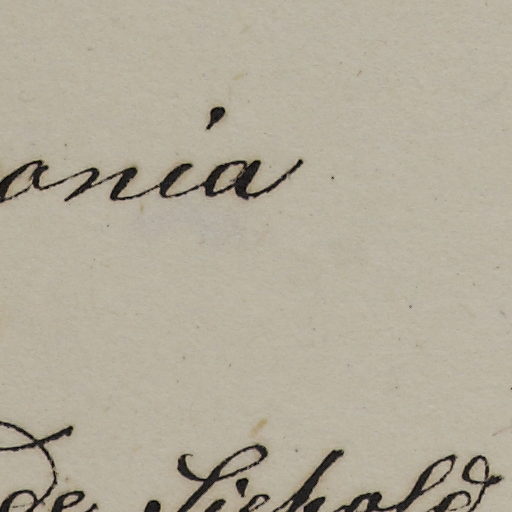 onia
de Siebold